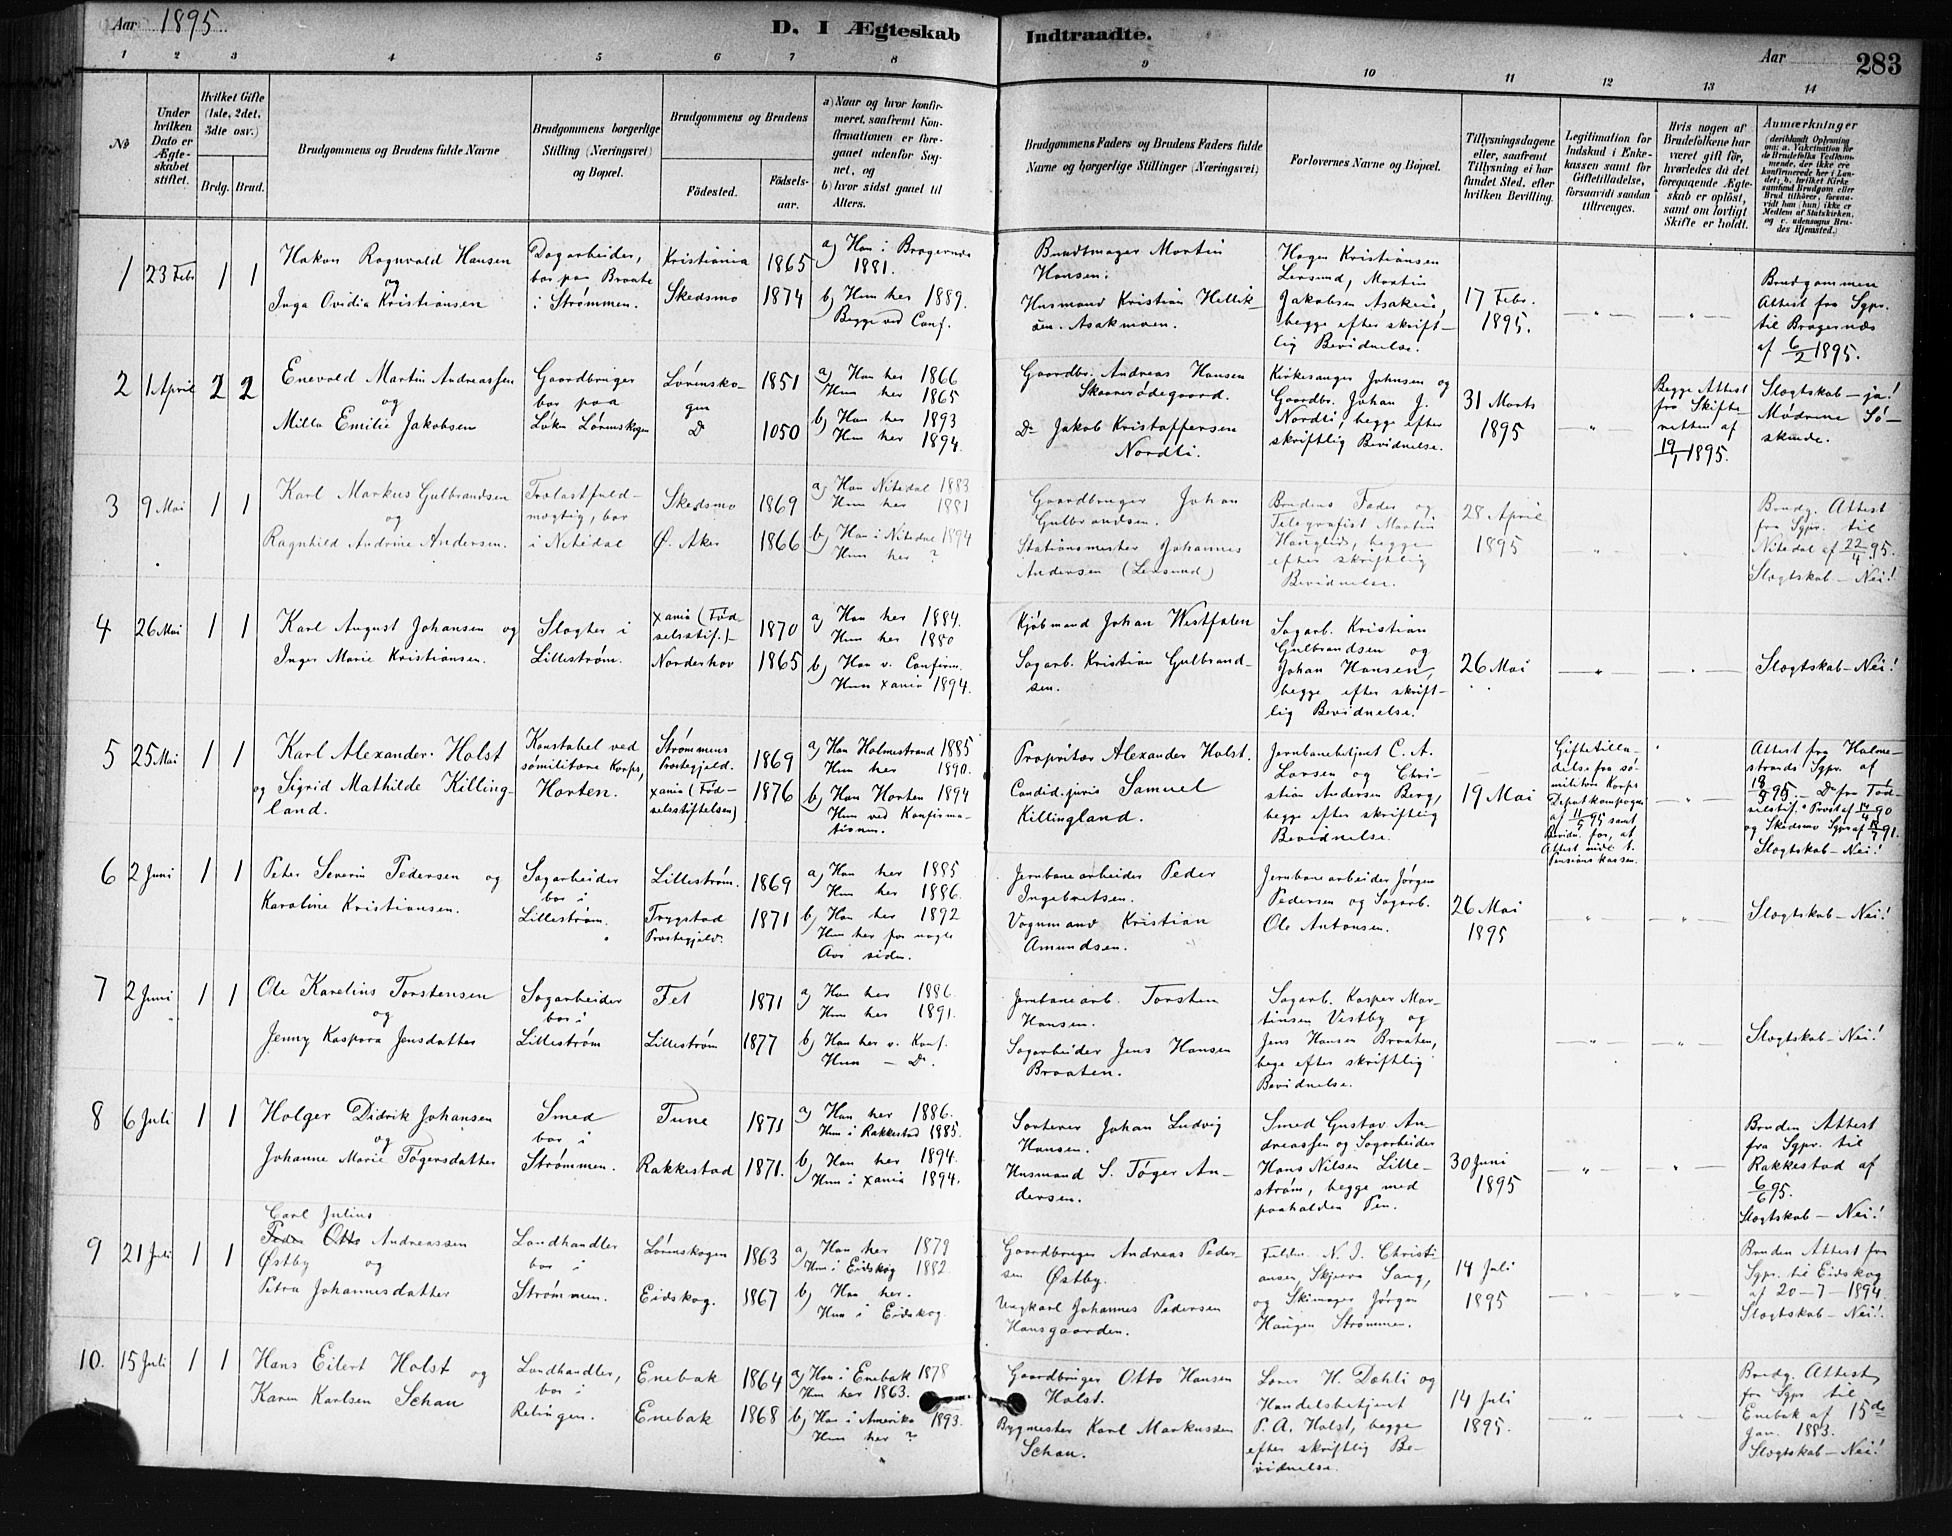 Aar 1895.
D. I Ægteskab Indtraadte.
Aar 283
1 2 3 4 5 6 7 8 9 10 11 12 13 14
No
Under hvilken Dato er Ægteskabet stiftet.
Hvilket Gifte (1ste, 2det, 3die osv.)
Brdg. Brud.
Brudgommens og Brudens fulde Navne
Brudgommens borgerlige Stilling (Næringsvei) og Bopæl.
Brudgommens og Brudens
Fødested.
Fødselsaar.
a) Naar og hvor konfirmeret, saafremt Konfirmationen er foregaaet udenfor Sognet, og
b) hvor sidst gaaet til Alters.
Brudgommens Faders og Brudens Faders fulde Navne og borgerlige Stillinger (Næringsvei)
Forlovernes Navne og Bopæl.
Tillysningsdagene eller, saafremt Tillysning ei har fundet Sted, efter hvilken Bevilling.
Legitimation for Indskud i Enkekassen samt for Giftetilladelse, forsaavidt saadan tiltrænges.
Hvis nogen af Brudefolkene har været gift før, hvorledes da det foregaaende Ægteskab er opløst, samt om lovligt Skifte er holdt.
Anmærkninger (deriblandt Oplysning om: a. Vakcination for de Brudefolks Vedkommende, der ikke ere konfirmerede her i Landet; b. hvilket Kirkesamfund Brudgom eller Brud tilhører, forsaavidt han (hun) ikke er Medlem af Statskirken, og c. udensogns Brudes Hjemsted.)
1 23 Febr 1 1
Hakon Ragnvald Hansen
og
Inga Ovidia Kristiansen
Dagarbeider,
bor paa Braate
i Strømmen.
Kristiania 1865
Skedsmo 1874
a) Han i Bragernes
1881.
b) Hun her 1889.
Begge ved Conf.
Bundtmager Martin
Hansen.
Husmand Kristian Hellik-
sen. Asakmoen.
Hagen Kristiansen
Lersund, Martin
Jakobsen Asakeie,
begge efter skrift-
lig Bevidnelse.
17 Febr.
1895.
Brudgommen
Attest fra Sgpr.
til Bragernæs
af 6/2 1895.
2 1 April 2 2
Enevold Martin Andreassen
og
Milla Emilie Jakobsen
Gaardbruger
bor paa
Løken Lørenskogen
Lørensko- 1851
gen
Do 1050
a) Han her 1866
Hun her 1865
b) Han her 1893
Hun her 1894.
Gaardbr. Andreas Hansen
Skaarerødegaard.
Do Jakob Kristoffersen
Nordli.
Kirkesanger Johnsen og
Gaardbr. Johan J.
Nordli, begge efter
skriftlig Bevidnelse.
31 Marts
1895
Begge Attest
fra Skifte
retten af
19/1 1895.
Slægtskab – ja!
Mødrene Sø-
skende.
3 9 Mai 1 1
Karl Markus Gulbrandsen
og
Ragnhild Andrine Andersen.
Trælastfuld-
mægtig, bor
i Nitedal
Skedsmo 1869
Ø. Aker 1866
a) Han Nitedal 1883
Hun her 1881
b) Han i Nitedal 1894
Hun her ?
Gaardbruger Johan
Gulbrandsen.
Stationsmester Johannes
Andersen (Lersund)
Brudens Fader og
Telegrafist Martin
Hauglid, begge
efter skriftlig
Bevidnelse.
28 April
1895
Brudg. Attest
fra Sgpr. til
Nitedal af 22/4 95.
Slægtskab – Nei!
4 26 Mai 1 1
Karl August Johansen og
Inger Marie Kristiansen.
Slagter i
Lillestrøm.
Xania (Fød-
selsstif.) 1870
Norderhov 1865
a) Han her 1884.
Hun her 1880
b) Han v. Confirm.
Hun Xania 1894.
Kjøbmand Johan Westfalen
Sagarb. Kristian Gulbrand-
sen.
Sagarb. Kristian
Gulbrandsen og
Johan Hansen,
begge efter skrift-
lig Bevidnelse.
26 Mai
Slægtskab – Nei!
5 25 Mai 1 1
Karl Alexander Holst
og Sigrid Mathilde Killing-
land.
Konstabel ved
sømilitære Korps,
Horten.
Strømmens
Præstegjeld. 1869
Xania (Fød-
selsstiftelsen) 1876
a) Han Holmestrand 1885
Hun her 1890.
b) Han Horten 1894
Hun ved Konfirma-
tionen.
Proprietær Alexander Holst.
Candid. juris Samuel
Killingland.
Jernbanebetjent C. A.
Larsen og Chri-
stian Andersen Berg,
begge efter skriftlig
Bevidnelse.
19 Mai
Giftetilla-
delse fra sø-
militære Korps
Depotkompagni
af 11/5 95 samt
Bevidn. for, at
Attest indl. t.
Pensionskassen.
Attest fra Holme-
strands Sgpr. af
18/5 95. – Do fra Fød-
selsstif.s Præst af 14/4 90
og Skedsmo Sgpr af 91.
Slægtskab – Nei!
6 2 Juni 1 1
Peter Severin Pedersen og
Karoline Kristiansen.
Sagarbeider
bor i
Lillestrøm.
Lillestrøm. 1869
Trygstad 1871
Præstegjeld.
a) Han her 1885
Hun her 1886.
b) Han her 1892
Hun her for nogle
Aar siden.
Jernbanearbeider Peder
Ingebretsen.
Vognmand Kristian
Amundsen.
Jernbanearbeider Jørgen
Pedersen og Sagarb.
Ole Antonsen.
26 Mai
1895
Slægtskab – Nei!
7 2 Juni 1 1
Ole Karelius Torstensen
og
Jenny Kaspara Jensdatter
Sagarbeider
bor i
Lillestrøm
Fet 1871
Lillestrøm 1877
a) Han her 1886.
Hun her 1891.
b) Han her v. Konf.
Hun – Do.
Jernbanearb. Torsten
Hansen.
Sagarbeider Jens Hansen
Braaten.
Sagarb. Kasper Mar-
tinsen Vestby og
Jens Hansen Braaten,
bege efter skriftlig
Bevidnelse.
Slægtskab – Nei!
8 6 Juli 1 1
Holger Didrik Johansen
og
Johanne Marie Tøgersdatter
Smed
bor i
Strømmen.
Tune 1871
Rakkestad 1871.
a) Han her 1886.
Hun i Rakkestad 1885.
b) Han her 1894.
Hun i Xania 1894.
Sorterer Johan Ludvig
Hansen.
Husmand S. Tøger An-
dersen.
Smed Gustav An-
dreassen og Sagarbeider
Hans Nilsen Lille-
strøm, begge med
paaholden Pen.
30 Juni
1895
Bruden Attest
fra Sgpr. til
Rakkestad af
6/6 95.
Slægtskab – Nei!
9 21 Juli 1 1
Carl Julius
Otto Andreassen
Østby og
Petra Johannesdatter
Landhandler
bor i
Strømmen.
Lørenskogen 1863
Eidskog. 1867
a) Han her 1879
Hun i Eidskog 1882.
b) Han her.
Hun i Eidskog.
Gaardbruger Andreas Peder-
sen Østby.
Ungkarl Johannes Pedersen
Hansgaarden.
N. J. Christi-
ansen, Skjerva Sang,
og Skimager Jørgen
Haugen Strømmen.
14 Juli
1895
Bruden Attest fra
Sgpr. til Eidskog
af 20 – 7 – 1894
Slægtskab – Nei!
10. 15 Juli 1 1
Hans Eilert Holst og
Karen Karlsen Schau
Landhandler,
bor i
Relingen.
Enebak 1864
Enebak 1868
a) Han i Enebak 1878
Hun her 1863.
b) Han i Amerika 1893.
Hun her ?
Gaardbruger Otto Hansen
Holst.
Bygmester Karl Markussen
Schau.
Lærer H. Dæhli og
Handelsbetjent
P. A. Holst, begge
efter skriftlig Be-
vidnelse.
14 Juli
1895.
Brudg. Attest
fra Sgpr. til
Enebak af 15de
Jan. 1883.
Slægtskab – Nei!